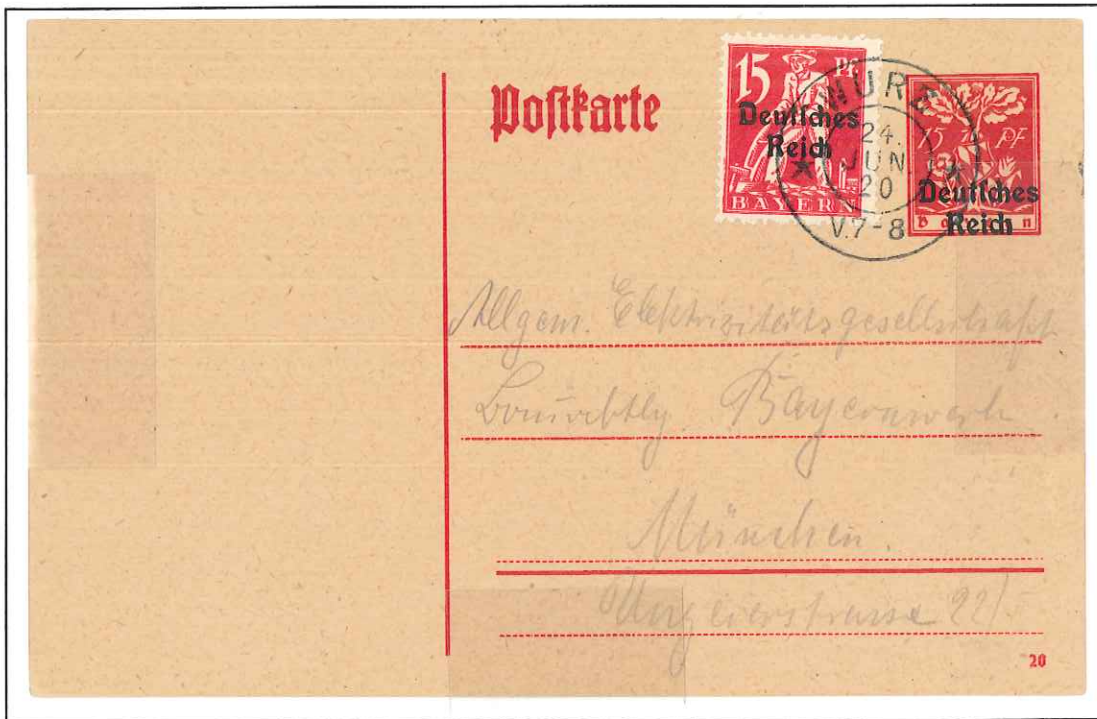 Postkarte
15 Pf.
Deutsches
Reich
BAYERN
WÜRZ
24.
JUN
20
V.7-8
15 PF
Deutsches
Reich
Bayern
Allgem. Elektrizitätsgesellschaft
Bayernwerk
München.
Ungererstrasse
20